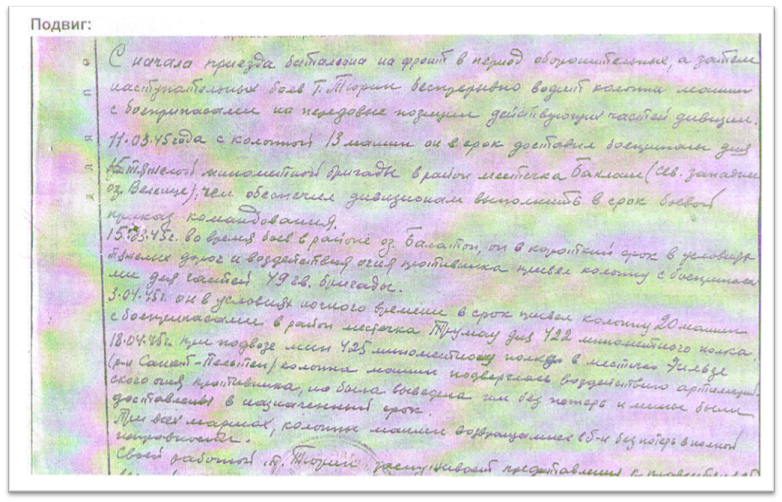 Подвиг:
С начала приезда батальона на фронт в период оборонительных, а затем
наступательных боев т. Тюрин беспрерывно водит колонны машин
с боеприпасами на передовые позиции действующих частей дивизии.
11.03.45 года с колонной 13 машин он в срок доставил боеприпасы для
минометной бригады в район местечка Баклаш (сев. западнее
оз. Веленце), чем обеспечил дивизионам выполнить в срок боевой
приказ командования.
15.03.45г. во время боев в районе оз. Балатон, он в короткий срок в условиях
дорог и воздействия огня противника привел колонну с боеприпаса
ми для частей 49 гв. бригады.
3.04.45г. он в условиях ночного времени в срок привел колонну 20 машин
с боеприпасами в район местечка Трумау для 422 минометного полка.
18.04.45г. при подвозе мин 425 минометному полку в местечко
(р-н Санкт-Пельтен) колонна машин подверглась воздействию артиллерий
ского огня противника, но была выведена им без потерь и мины были
доставлены в назначенный срок.
При всех маршах, колонны машин возвращались в б-н без потерь в полной
исправности.
Своей работой т. Тюрин заслуживает представления к